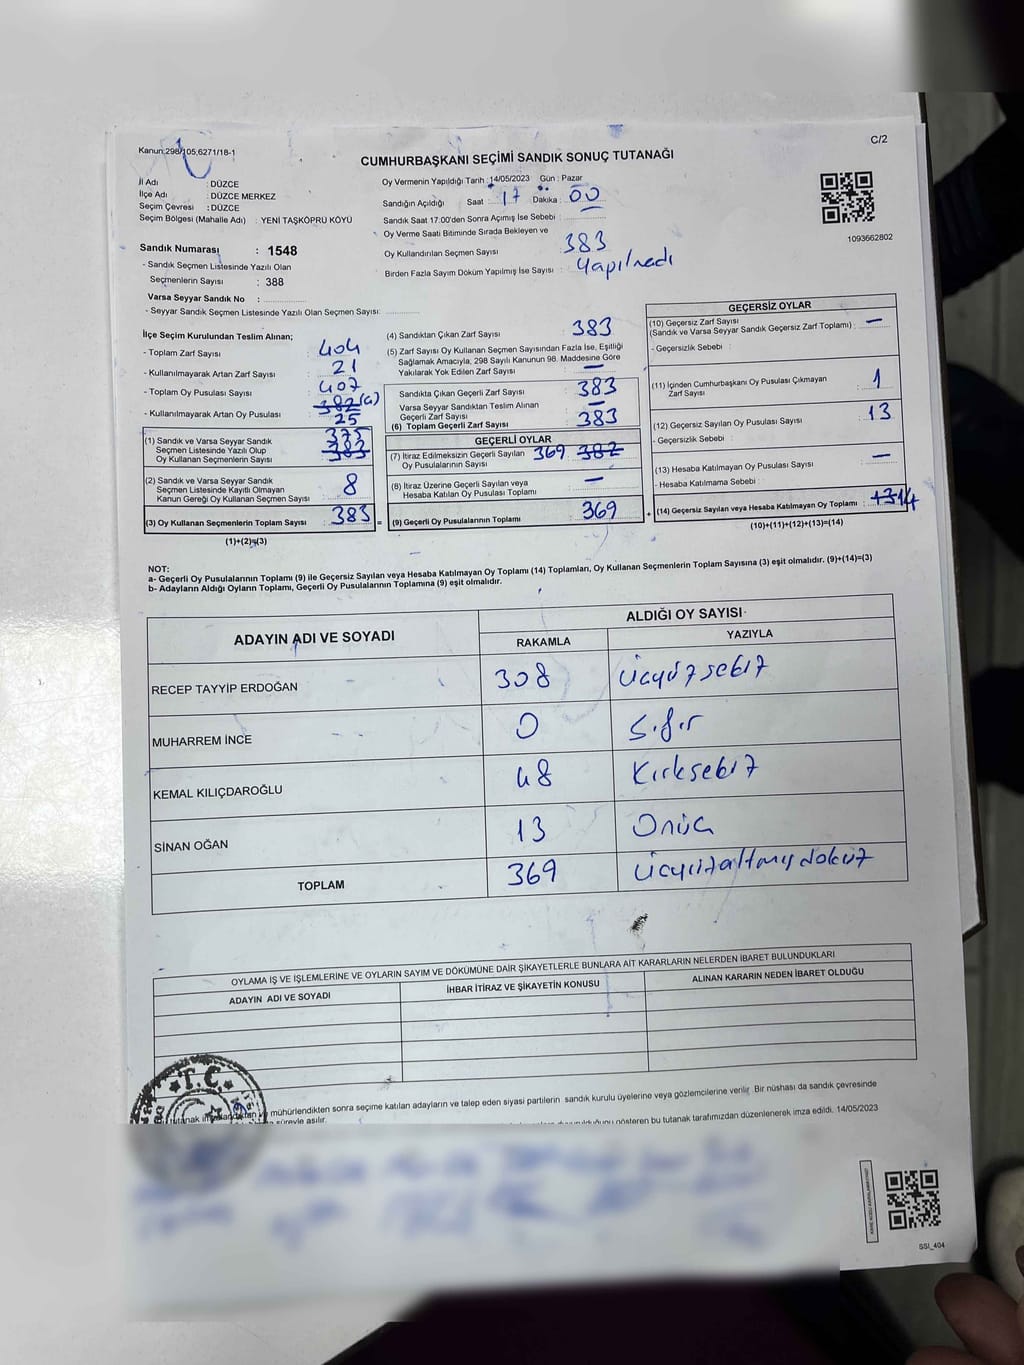 Kanun:298/105,6271/18-1
C/2
CUMHURBAŞKANI SEÇİMİ SANDIK SONUÇ TUTANAĞI
İl Adı : DÜZCE
İlçe Adı : DÜZCE MERKEZ
Seçim Çevresi : DÜZCE
Seçim Bölgesi (Mahalle Adı) : YENİ TAŞKÖPRÜ KÖYÜ
Oy Vermenin Yapıldığı Tarih : 14/05/2023 Gün : Pazar
Sandığın Açıldığı Saat : 17 Dakika : 00
Sandık Saat 17:00'den Sonra Açımış İse Sebebi :
Oy Verme Saati Bitiminde Sırada Bekleyen ve
Oy Kullandırılan Seçmen Sayısı : 383
Birden Fazla Sayım Döküm Yapılmış İse Sayısı : Yapılmadı
1093662802
Sandık Numarası : 1548
- Sandık Seçmen Listesinde Yazılı Olan
Seçmenlerin Sayısı : 388
Varsa Seyyar Sandık No :
- Seyyar Sandık Seçmen Listesinde Yazılı Olan Seçmen Sayısı:
İlçe Seçim Kurulundan Teslim Alınan;
- Toplam Zarf Sayısı 404
- Kullanılmayarak Artan Zarf Sayısı 21
- Toplam Oy Pusulası Sayısı 407
- Kullanılmayarak Artan Oy Pusulası 382(a) 25
(1) Sandık ve Varsa Seyyar Sandık
Seçmen Listesinde Yazılı Olup
Oy Kullanan Seçmenlerin Sayısı 375 383
(2) Sandık ve Varsa Seyyar Sandık
Seçmen Listesinde Kayıtlı Olmayan
Kanun Gereği Oy Kullanan Seçmen Sayısı 8
(3) Oy Kullanan Seçmenlerin Toplam Sayısı 383 =
(1)+(2)=(3)
(4) Sandıktan Çıkan Zarf Sayısı 383
(5) Zarf Sayısı Oy Kullanan Seçmen Sayısından Fazla İse, Eşitliği
Sağlamak Amacıyla, 298 Sayılı Kanunun 98. Maddesine Göre
Yakılarak Yok Edilen Zarf Sayısı —
Sandıkta Çıkan Geçerli Zarf Sayısı 383
Varsa Seyyar Sandıktan Teslim Alınan
Geçerli Zarf Sayısı —
(6) Toplam Geçerli Zarf Sayısı 383
GEÇERLİ OYLAR
(7) İtiraz Edilmeksizin Geçerli Sayılan
Oy Pusulalarının Sayısı 369 382
(8) İtiraz Üzerine Geçerli Sayılan veya
Hesaba Katılan Oy Pusulası Toplamı —
(9) Geçerli Oy Pusulalarının Toplamı 369 +
GEÇERSİZ OYLAR
(10) Geçersiz Zarf Sayısı
(Sandık ve Varsa Seyyar Sandık Geçersiz Zarf Toplamı) : —
- Geçersizlik Sebebi :
(11) İçinden Cumhurbaşkanı Oy Pusulası Çıkmayan
Zarf Sayısı 1
(12) Geçersiz Sayılan Oy Pusulası Sayısı 13
- Geçersizlik Sebebi :
(13) Hesaba Katılmayan Oy Pusulası Sayısı —
- Hesaba Katılmama Sebebi :
(14) Geçersiz Sayılan veya Hesaba Katılmayan Oy Toplamı 13 14
(10)+(11)+(12)+(13)=(14)
NOT:
a- Geçerli Oy Pusulalarının Toplamı (9) ile Geçersiz Sayılan veya Hesaba Katılmayan Oy Toplamı (14) Toplamları, Oy Kullanan Seçmenlerin Toplam Sayısına (3) eşit olmalıdır. (9)+(14)=(3)
b- Adayların Aldığı Oyların Toplamı, Geçerli Oy Pusulalarının Toplamına (9) eşit olmalıdır.
ADAYIN ADI VE SOYADI
ALDIĞI OY SAYISI
RAKAMLA YAZIYLA
RECEP TAYYİP ERDOĞAN 308 üçyüzsekiz
MUHARREM İNCE 0 Sıfır
KEMAL KILIÇDAROĞLU 48 Kırksekiz
SİNAN OĞAN 13 Onüç
TOPLAM 369 üçyüzaltmışdokuz
OYLAMA İŞ VE İŞLEMLERİNE VE OYLARIN SAYIM VE DÖKÜMÜNE DAİR ŞİKAYETLERLE BUNLARA AİT KARARLARIN NELERDEN İBARET BULUNDUKLARI
ADAYIN ADI VE SOYADI
İHBAR İTİRAZ VE ŞİKAYETİN KONUSU
ALINAN KARARIN NEDEN İBARET OLDUĞU
T.C.
mühürlendikten sonra seçime katılan adayların ve talep eden siyasi partilerin sandık kurulu üyelerine veya gözlemcilerine verilir. Bir nüshası da sandık çevresinde
süreyle asılır.
gösteren bu tutanak tarafımızdan düzenlenerek imza edildi. 14/05/2023
SSI_404